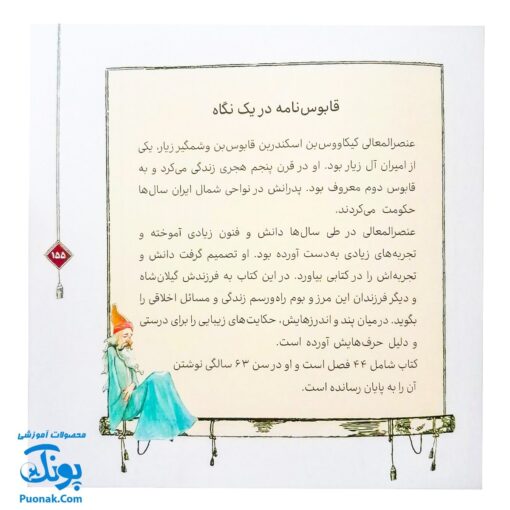 قابوس‌نامه در یک نگاه
عنصرالمعالی کیکاووس‌بن اسکندربن قابوس‌بن وشمگیر زیار، یکی
از امیران آل زیار بود. او در قرن پنجم هجری زندگی می‌کرد و به
قابوس دوم معروف بود. پدرانش در نواحی شمال ایران سال‌ها
حکومت می‌کردند.
عنصرالمعالی در طی سال‌ها دانش و فنون زیادی آموخته و
تجربه‌های زیادی به‌دست آورده بود. او تصمیم گرفت دانش و
تجربه‌اش را در کتابی بیاورد. در این کتاب به فرزندش گیلان‌شاه
و دیگر فرزندان این مرز و بوم راه‌ورسم زندگی و مسائل اخلاقی را
بگوید. در میان پند و اندرزهایش، حکایت‌های زیبایی را برای درستی
و دلیل حرف‌هایش آورده است.
کتاب شامل ۴۴ فصل است و او در سن ۶۳ سالگی نوشتن
آن را به پایان رسانده است.
۱۵۵
محصولات آموزشی
پونک
Puonak.Com